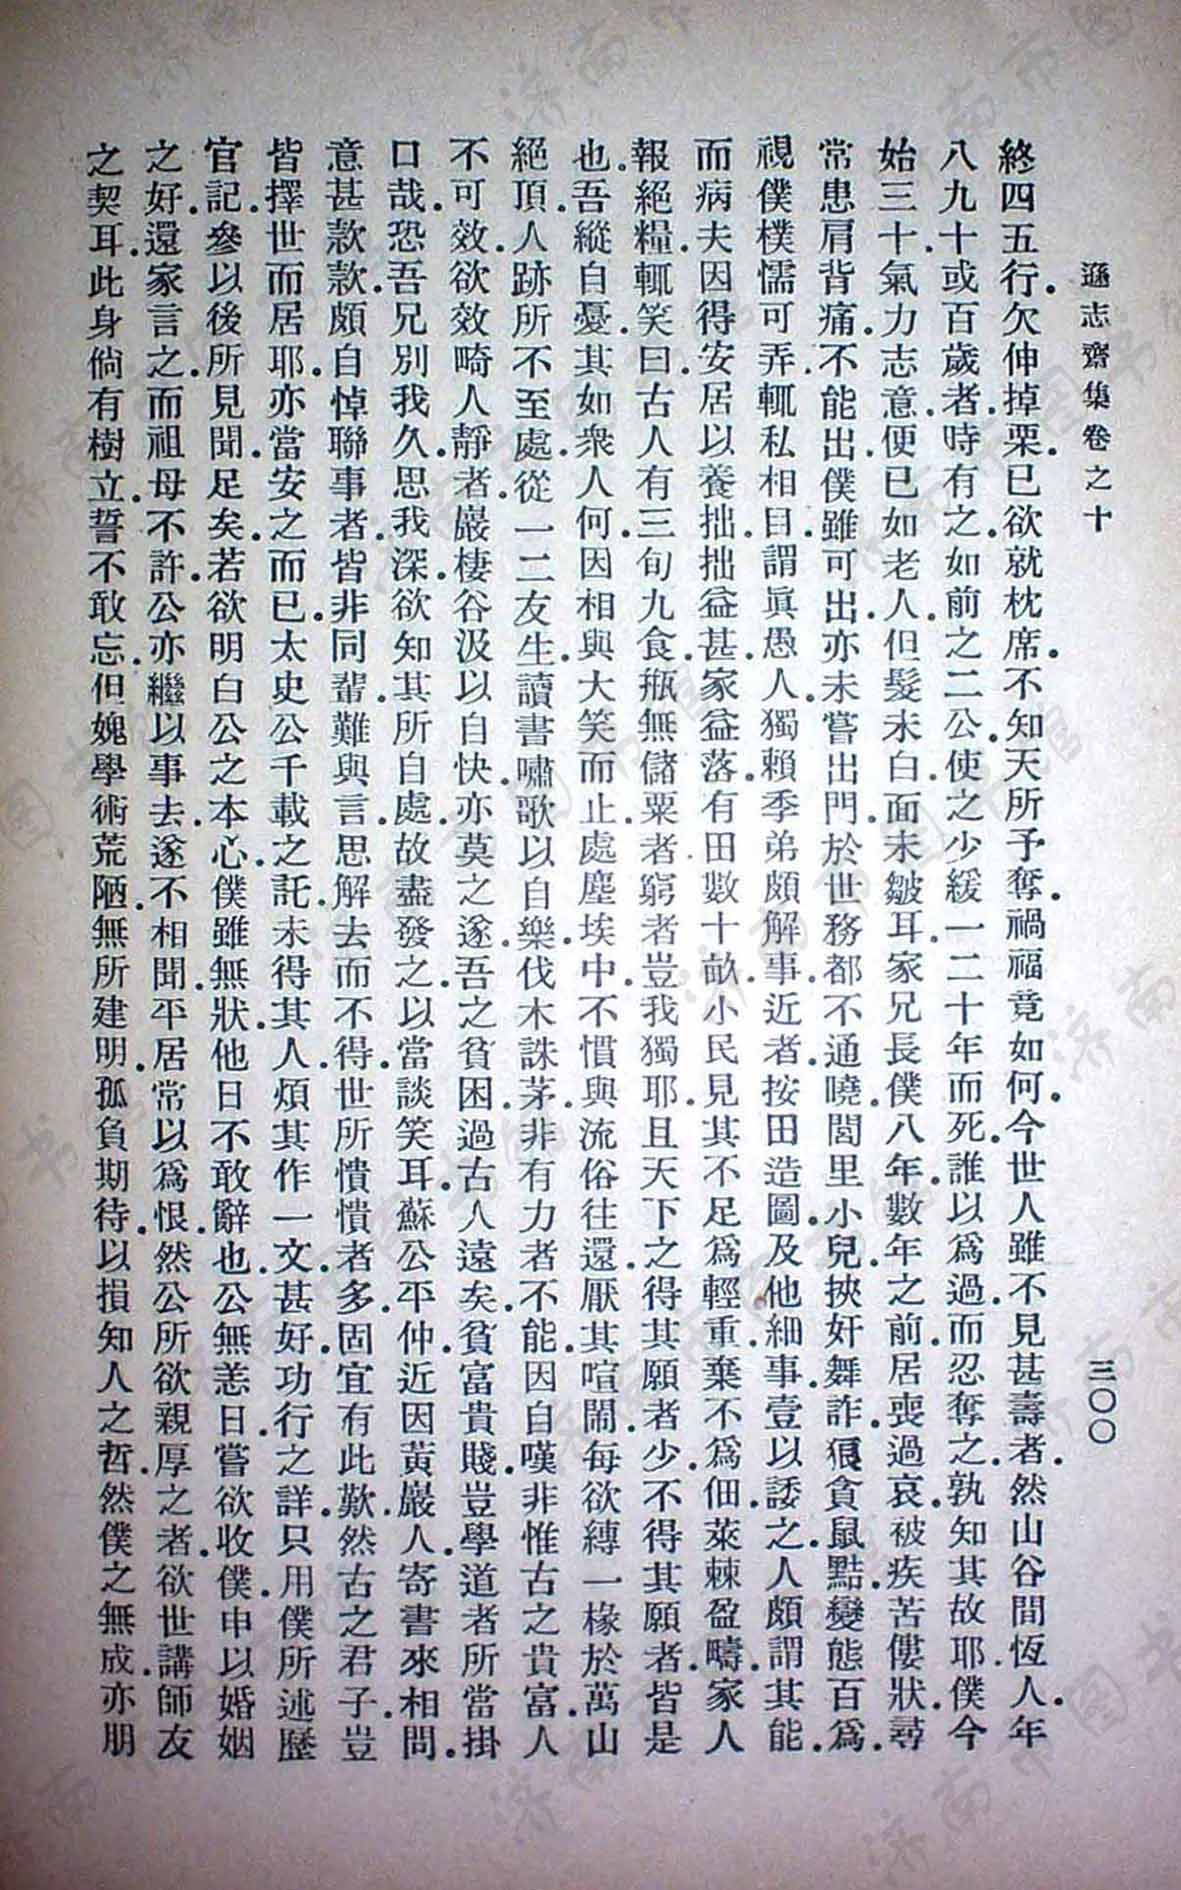 遜志齋集卷之十
三〇〇
終四五行欠伸掉栗已欲就枕席不知天所予奪禍福竟如何今世人雖不見甚壽者然山谷間恆人年
八九十或百歲者時有之如前之二公使之少緩一二十年而死誰以爲過而忍奪之孰知其故耶僕今
始三十氣力志意便已如老人但髮未白面未皺耳家兄長僕八年數年之前居喪過哀被疾苦僂狀尋
常患肩背痛不能出僕雖可出亦未嘗出門於世務都不通曉閭里小兒挾奸舞詐狠貪鼠黠變態百爲
視僕樸懦可弄輒私相目謂眞愚人獨賴季弟頗解事近者按田造圖及他細事壹以諉之人頗謂其能
而病夫因得安居以養拙拙益甚家益落有田數十畝小民見其不足爲輕重棄不爲佃萊棘盈疇家人
報絕糧輒笑曰古人有三旬九食缾無儲粟者窮者豈我獨耶且天下之得其願者少不得其願者皆是
也吾縱自憂其如衆人何因相與大笑而止處塵埃中不慣與流俗往還厭其喧鬧每欲縛一椽於萬山
絕頂人跡所不至處從一二友生讀書嘯歌以自樂伐木誅茅非有力者不能因自嘆非惟古之貴富人
不可效欲效畸人靜者巖棲谷汲以自快亦莫之遂吾之貧困過古人遠矣貧富貴賤豈學道者所當掛
口哉恐吾兄別我久思我深欲知其所自處故盡發之以當談笑耳蘇公平仲近因黃巖人寄書來相問
意甚款款頗自悼聯事者皆非同輩難與言思解去而不得世所憒憒者多固宜有此歎然古之君子豈
皆擇世而居耶亦當安之而已太史公千載之託未得其人煩其作一文甚好功行之詳只用僕所述歷
官記參以後所見聞足矣若欲明白公之本心僕雖無狀他日不敢辭也公無恙日嘗欲收僕申以婚姻
之好還家言之而祖母不許公亦繼以事去遂不相聞平居常以爲恨然公所欲親厚之者欲世講師友
之契耳此身倘有樹立誓不敢忘但媿學術荒陋無所建明孤負期待以損知人之哲然僕之無成亦朋